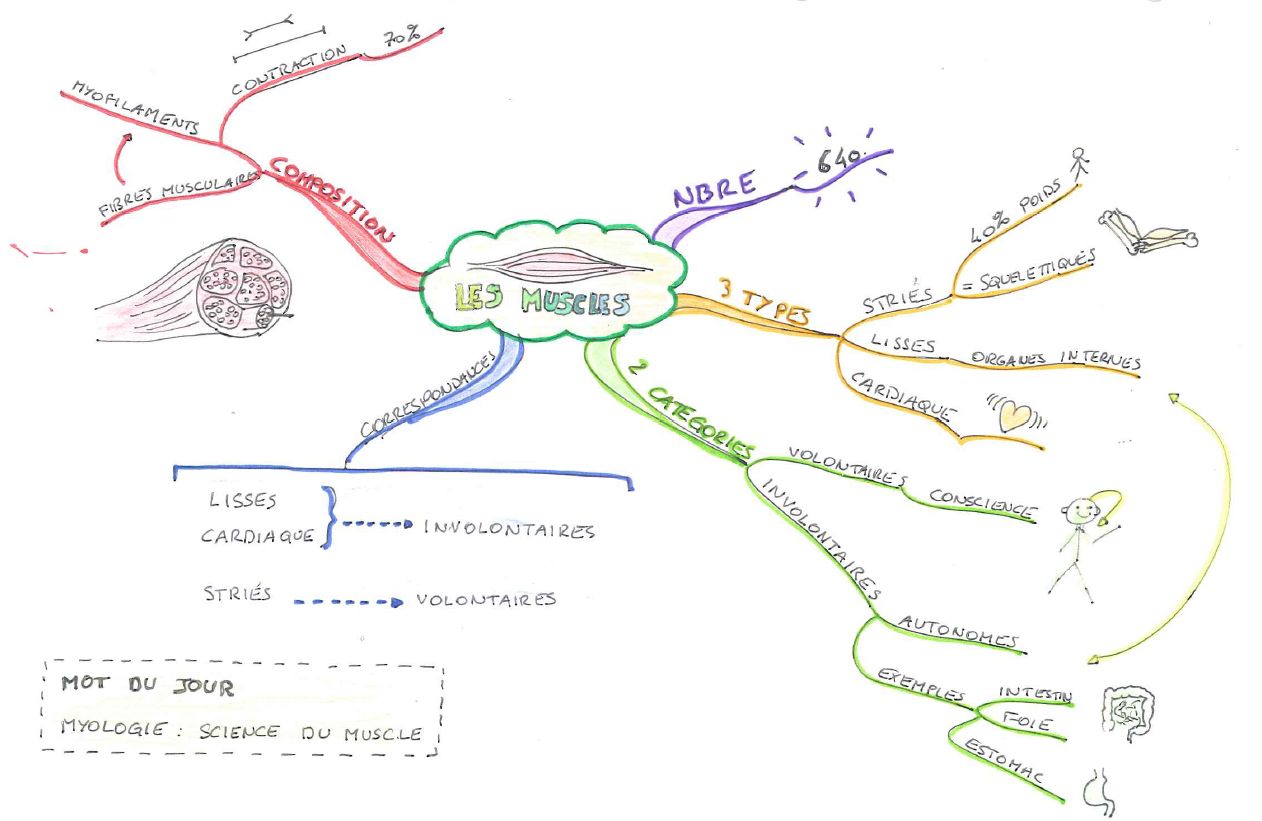 LES MUSCLES
COMPOSITION
FIBRES MUSCULAIRES
MYOFILAMENTS
CONTRACTION
70%
NBRE
640
3 TYPES
STRIÉS
40% POIDS
= SQUELETTIQUES
LISSES
ORGANES INTERNES
CARDIAQUE
2 CATEGORIES
VOLONTAIRES
CONSCIENCE
INVOLONTAIRES
AUTONOMES
EXEMPLES
INTESTIN
FOIE
ESTOMAC
CORRESPONDANCES
LISSES
CARDIAQUE
INVOLONTAIRES
STRIÉS
VOLONTAIRES
MOT DU JOUR
MYOLOGIE : SCIENCE DU MUSCLE